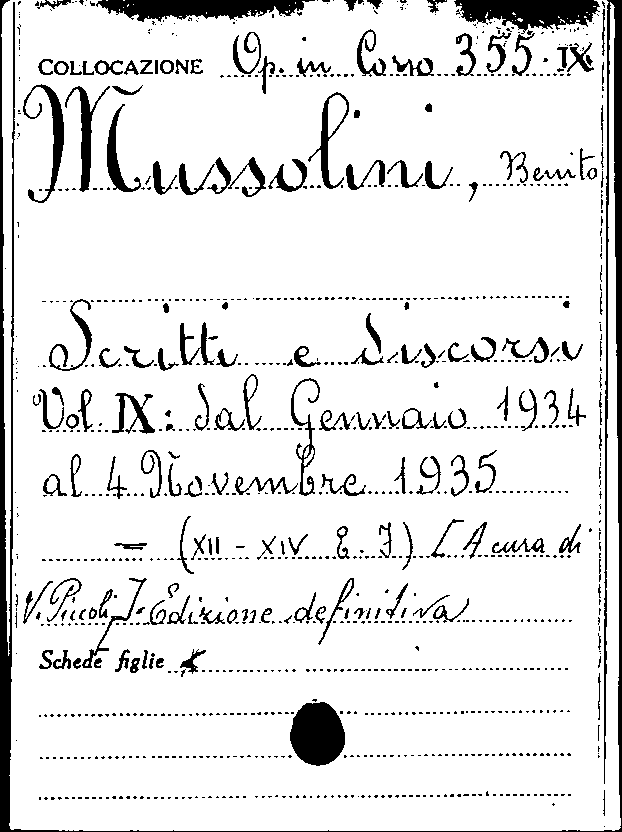 COLLOCAZIONE Op. in Corso 355. IX
Mussolini, Benito
Scritti e discorsi
Vol. IX: dal Gennaio 1934
al 4 Novembre 1935
— (XII - XIV E. F) [A cura di
V. Piccoli]. Edizione definitiva
Schede figlie